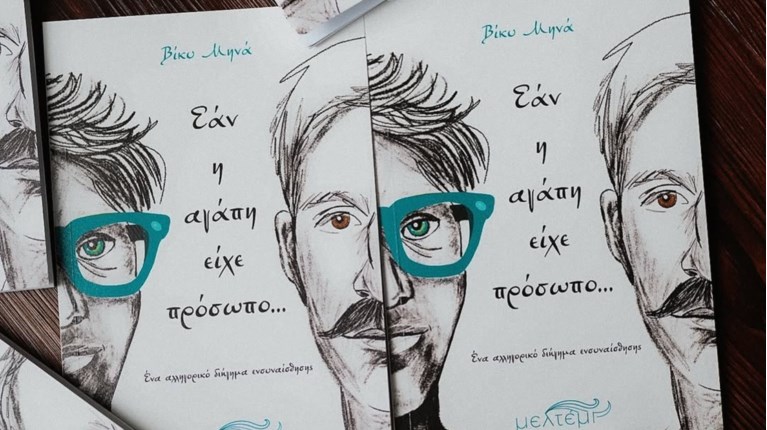 Βίκυ Μηνά
Εάν
η
αγάπη
είχε
πρόσωπο...
Ένα αλληγορικό διήγημα ενσυναίσθησης
Βίκυ Μηνά
Εάν
η
αγάπη
είχε
πρόσωπο...
Ένα αλληγορικό διήγημα ενσυναίσθησης
μελτέμι